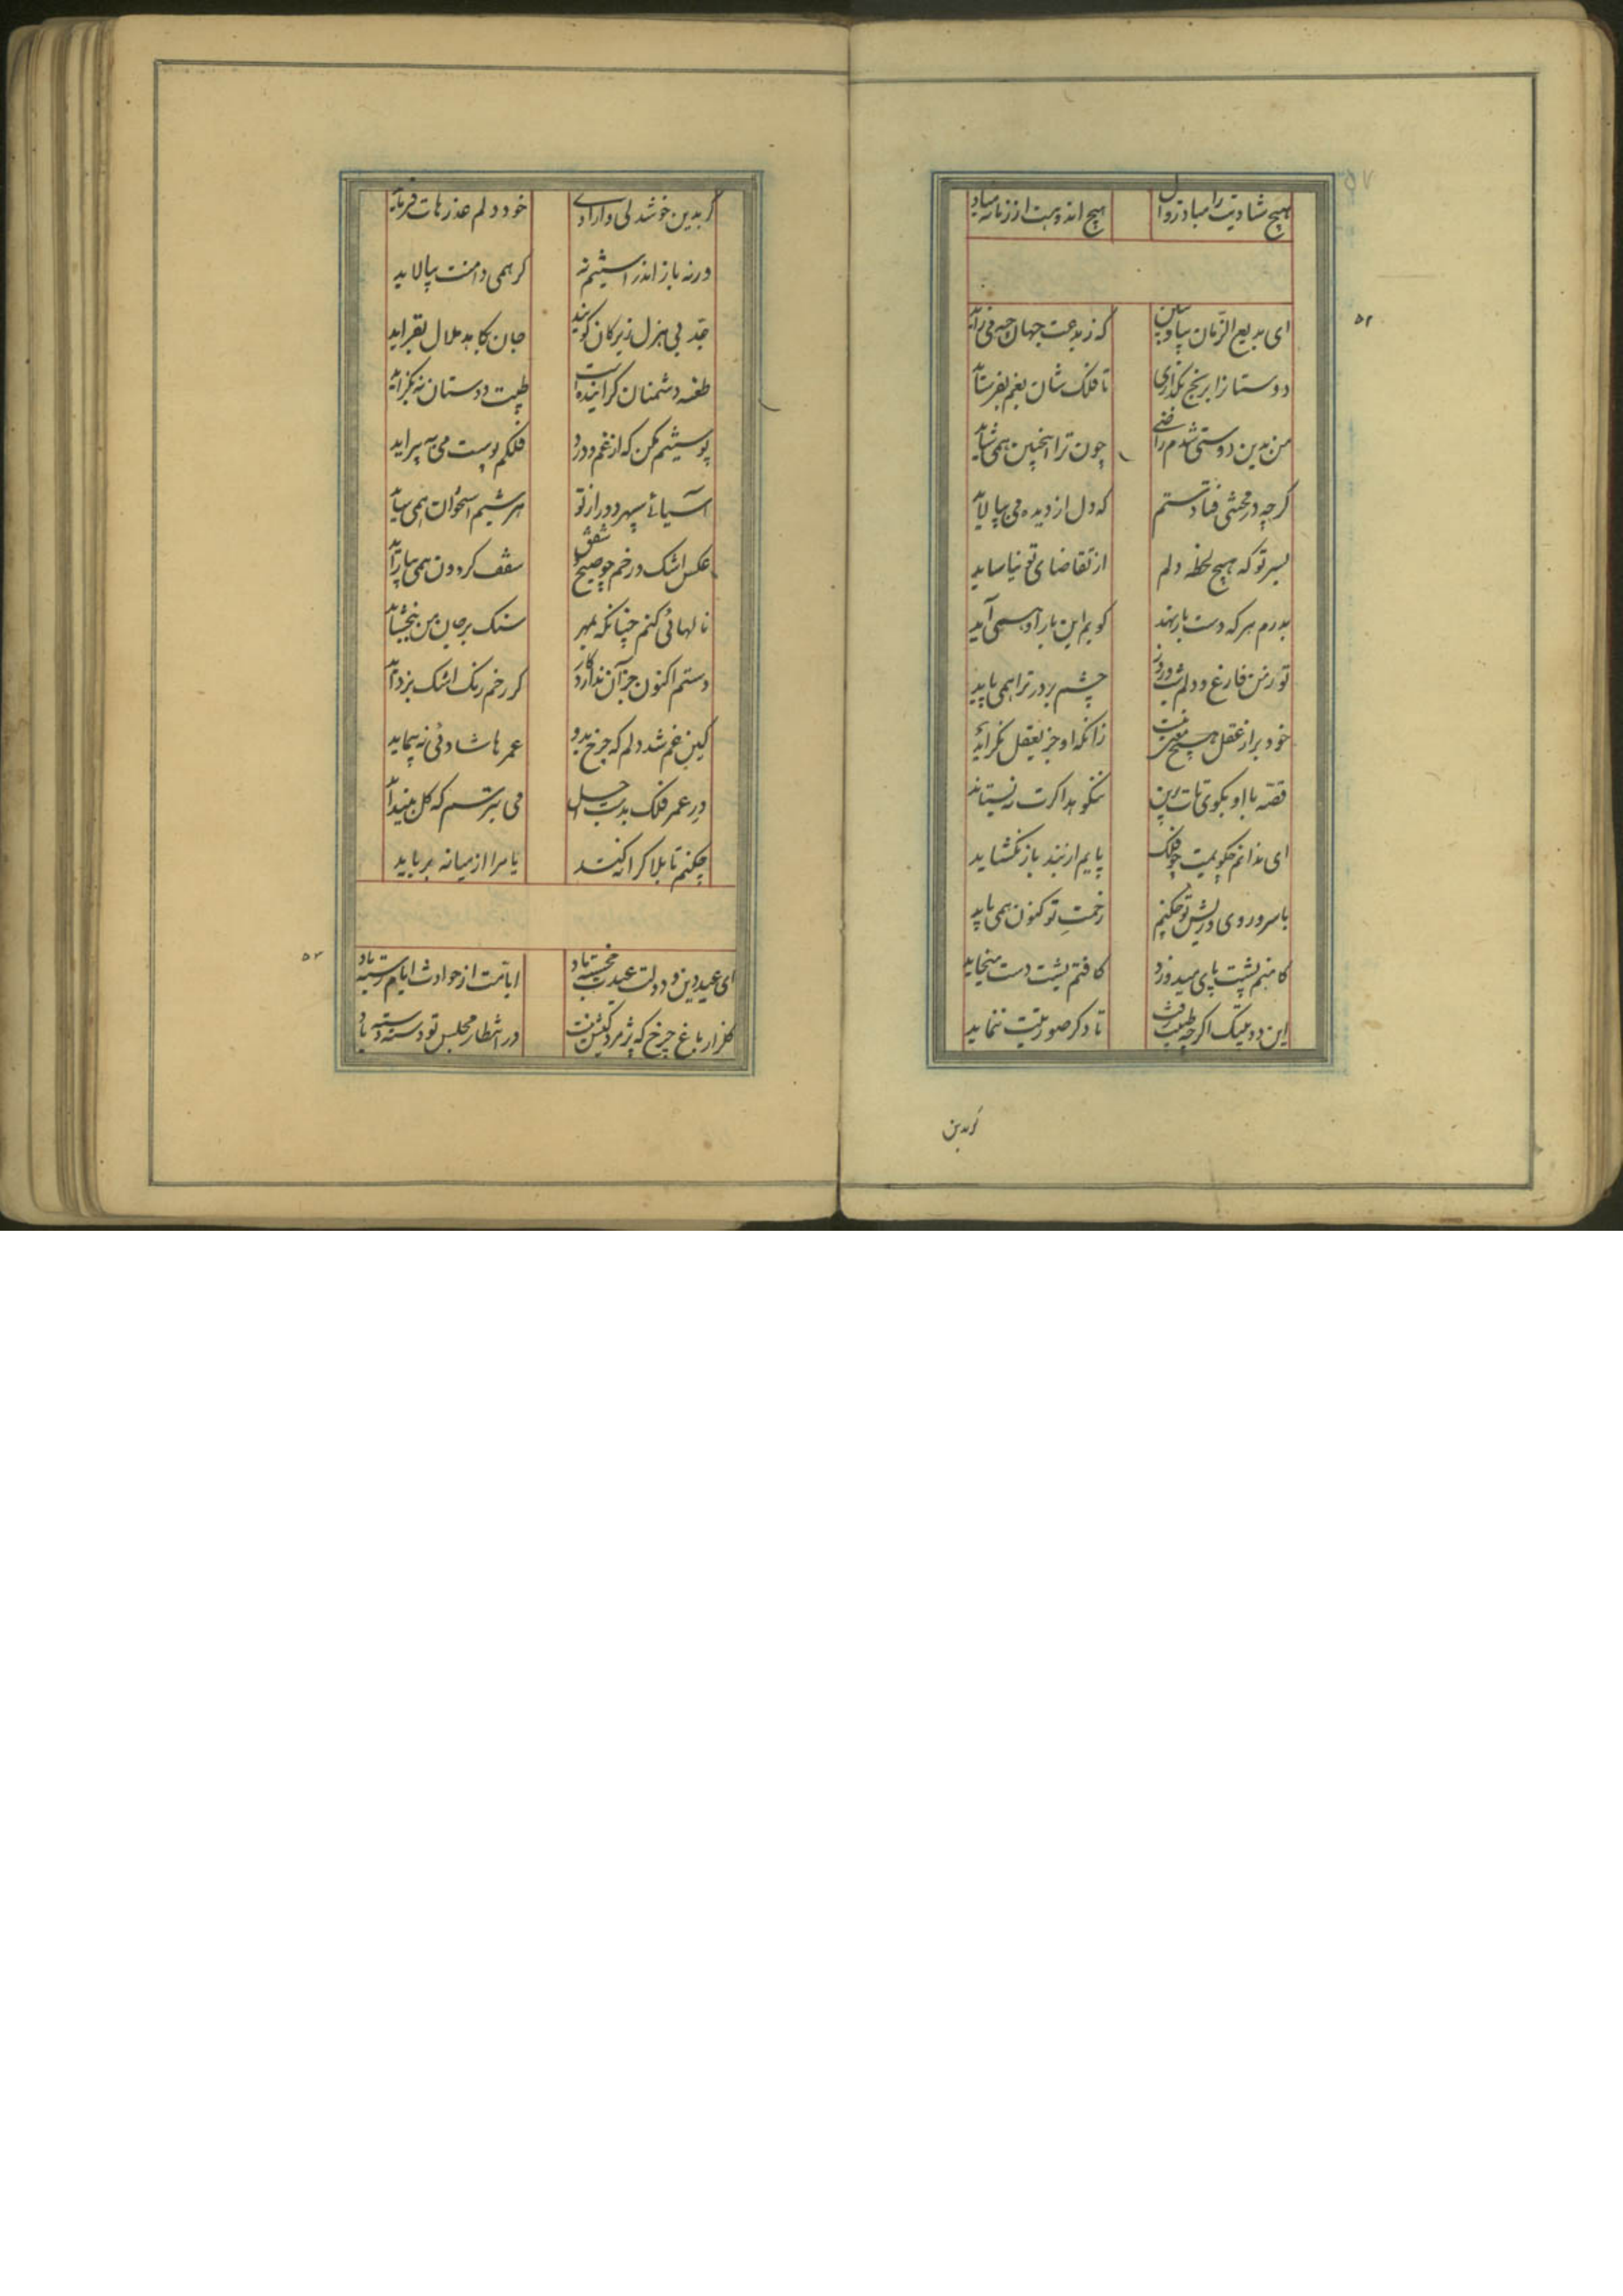 هیچ شادیت را مباد زوال هیچ اندوهت از زمانه مباد
۵۲
ای بدیع الزمان بیا و ببین که ز بدعت جهان چه می زاید
دوستانرا برنج بگذاری تا فلک شان بغم بفرساید
من بدین دوستی شدم راضی چون ترا اینچنین همی شاید
کرچه در محنتی فتادستم که دل از دیده می بپالاید
بسر تو که هیچ لحظه دلم از تقاضای تو نیاساید
بدرم هر که دست باز نهد کویم این بار او همی آید
تو ز من فارغ و دلم شب و روز چشم بر در ترا همی پاید
خود بر از عقل هیچ معنی نیست زانکه او جز بعقل نکراید
قصه با او بکوی تات ببین نیکو بد اکرت
ای ندانم چکویمت چو فلک پایم از بند باز نکشاید
با سر و روی و ریش تو چکنم زخمت تو کنون همی باید
کامنم پشت پای میدوزد کافتم پشت دست میخاید
این دو بیتک اکرچه طیبت رفت تا دکر صورتیت ننماید
کر بدین
کر بدین خوشدلی و آزادی خود دلم عذرهات فرماید
ورنه باز اندر استیم نه کر همی دامنت بیالاید
جد بی هزل زیرکان کویند جان بکاهد ملال بفزاید
طعنه دشمنان کزاینده است طیبت دوستان نه بکزاید
پوستینم مکن که از غم و درد فلکم پوست می به پیراید
آسیای سپهر دور از تو هر شبم استخوان همی ساید
عکس اشک و رخم چو صبح و شفق سقف کردون همی بیاراید
نالهائی کنم چنانکه بمهر سنک بر جان من ببخشاید
دستم اکنون جز آن ندارد کار کز رخم رنک اشک بزداید
کین غم شد دلم که چرخ بدو عمرها شادئی نه پیماید
در عمر فلک بدست اجل می بترسم که کل بینداید
چکنم تا بلا کرا نکند یا مرا از میانه برباید
۵۳
ای عید دین و دولت عیدت خجسته باد ایامت از حوادث ایام رسته باد
کلزار باغ چرخ که پژمردکیش نیست در انتظار مجلس تو دسته دسته باد